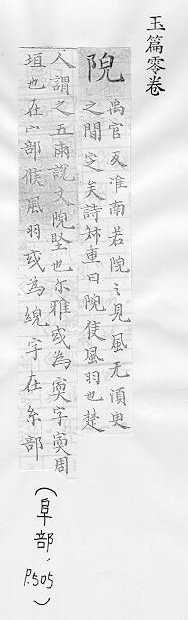 玉篇零卷
院
禹官反淮南若院之見風无須臾
之間定矣許叔重曰院候風羽也楚
人謂之五兩說文院堅也尔雅或為寏字寏周
垣也在宀部候風羽或為綄字在糸部
（阜部，P.505）